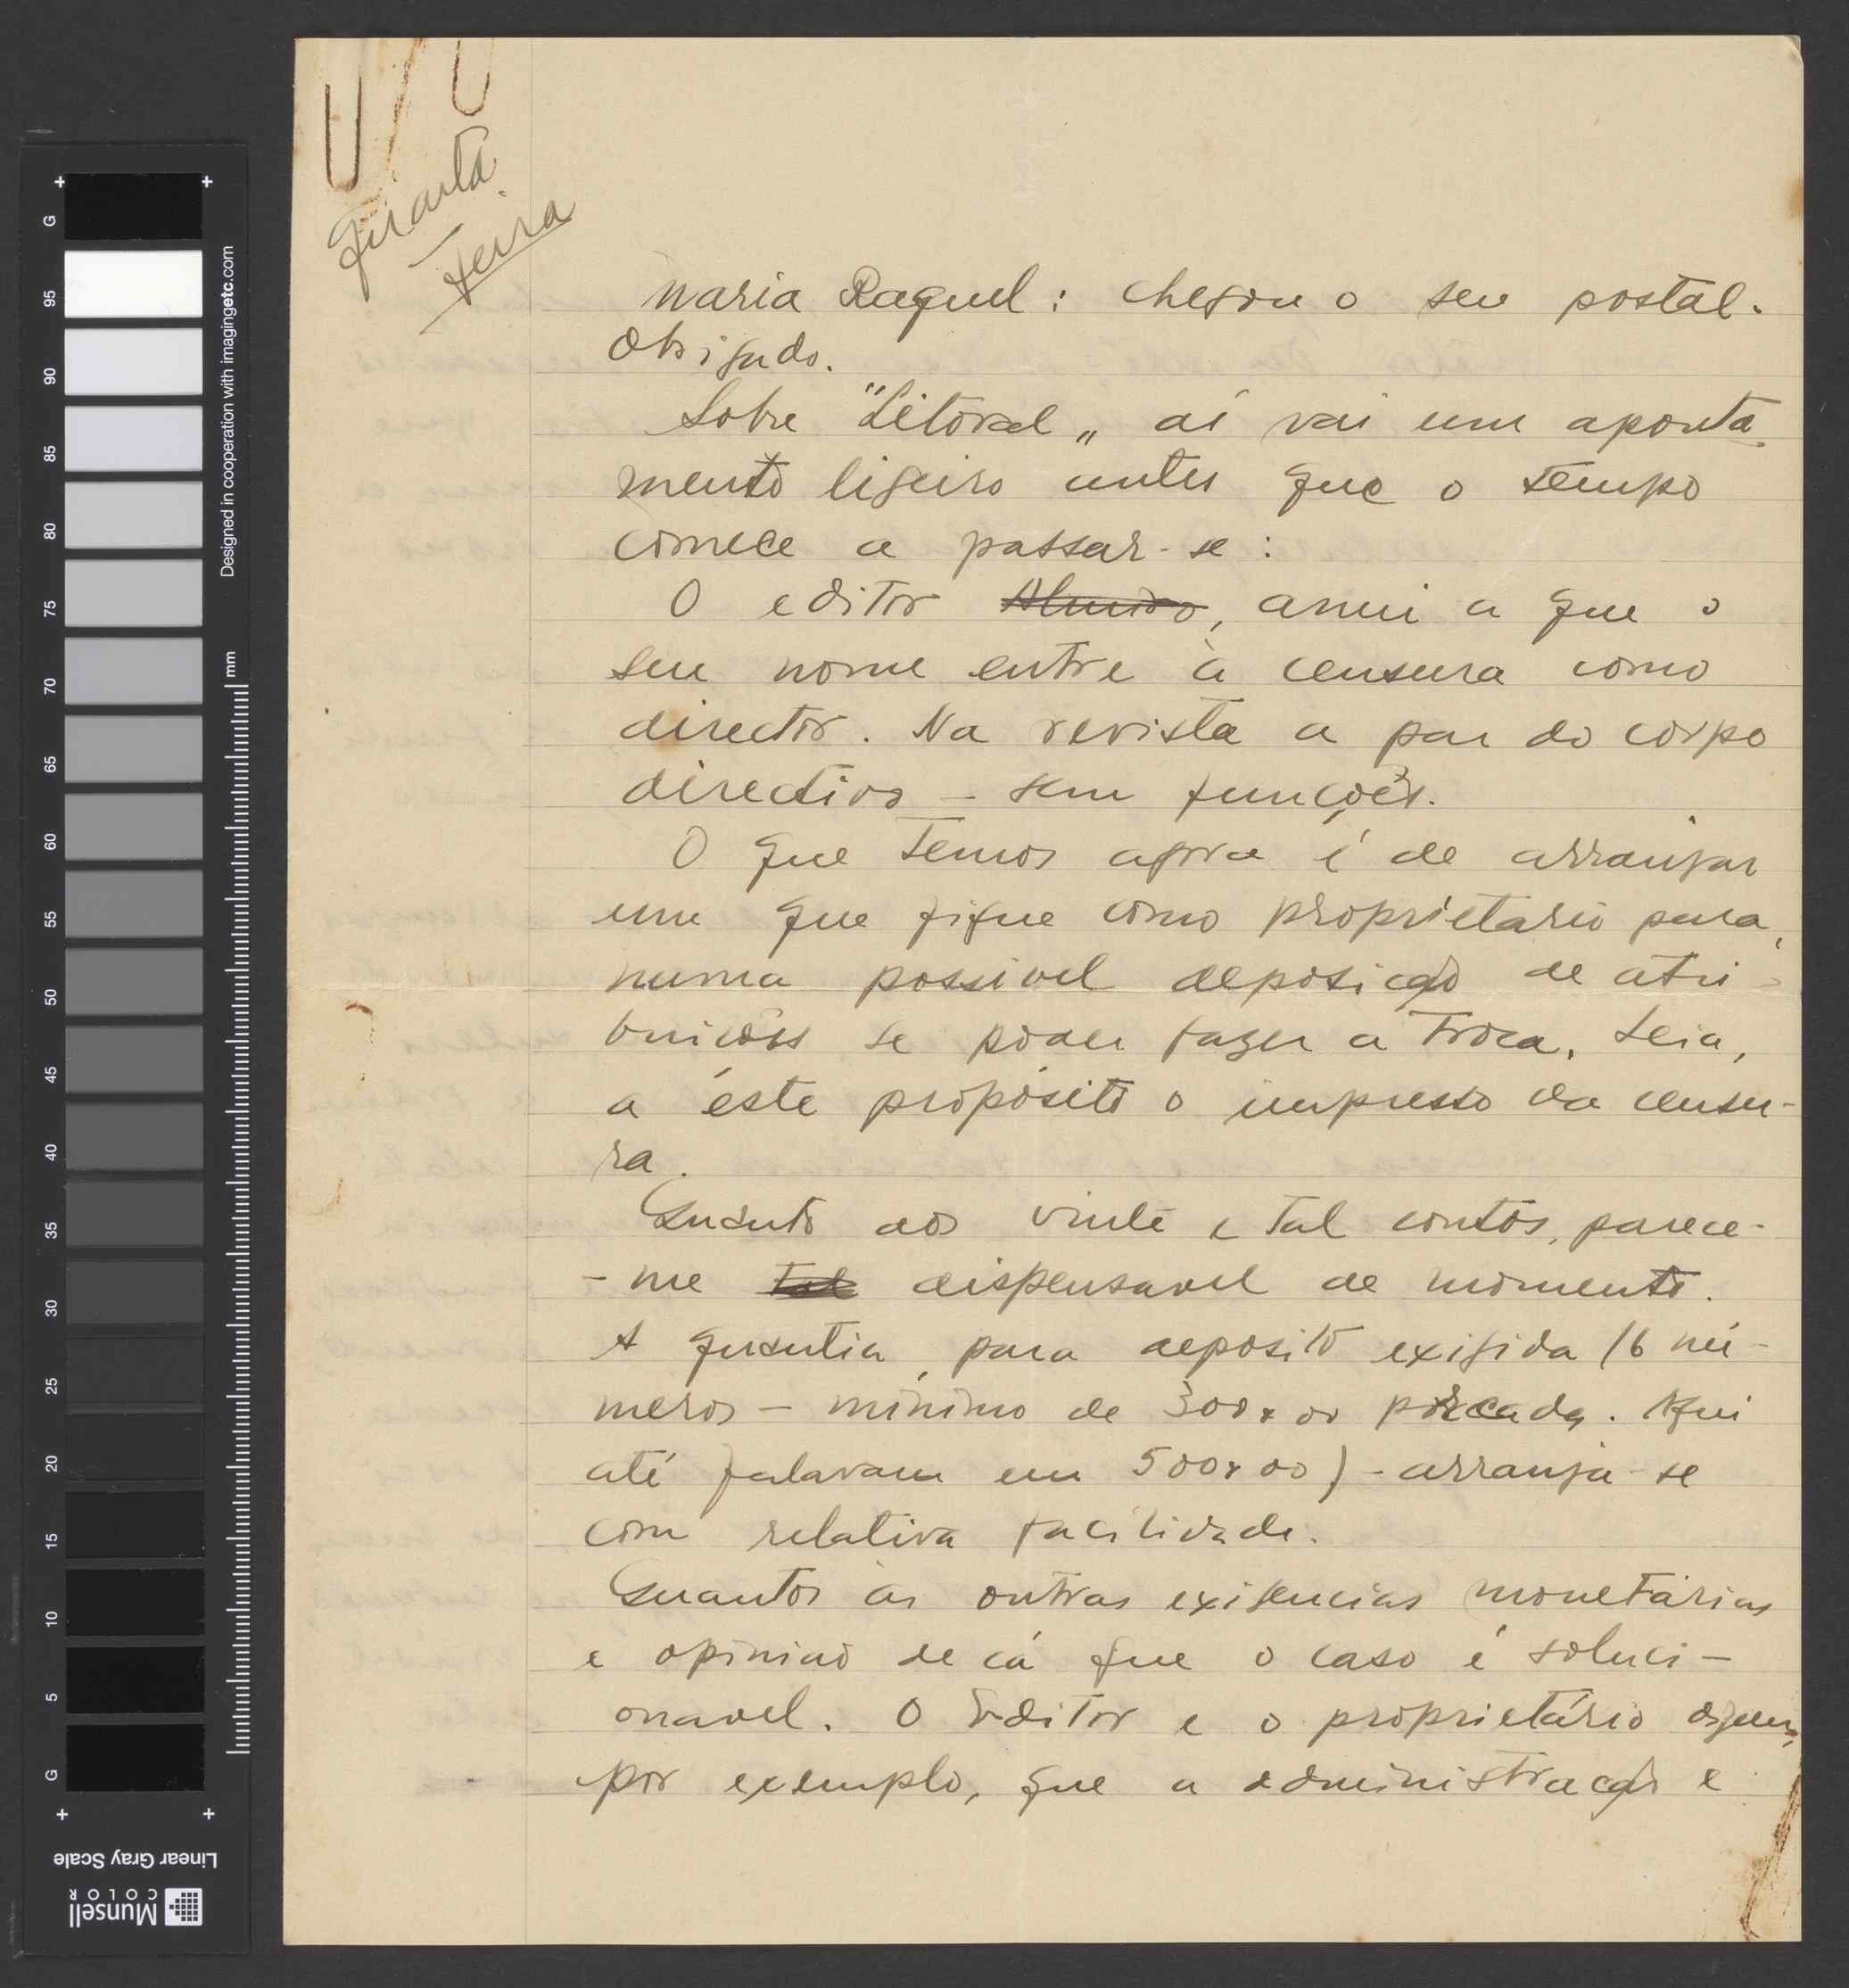 Quarta
-feira
Maria Raquel: chegou o seu postal.
Obrigado.
Sobre "Litoral„ aí vai um aponta-
mento ligeiro antes que o tempo
comece a passar-se:
O editor Alvaro, anui a que o
seu nome entre à censura como
director. Na revista a par do corpo
directivo - sem funções.
O que temos agora é de arranjar
um que fique como proprietario para,
numa possivel deposição de atri-
buicões se poder fazer a troca. Leia,
a êste propósito o impresso da censu-
ra.
Quanto aos vinte e tal contos, parece-
-me tal dispensavel de momento.
A quantia, para deposito exigida (6 nú-
meros - minimo de 300x00 por cada. Aqui
até falavam em 500x00) - arranja-se
com relativa facilidade.
Quantos às outras exigencias monetárias
e opinião de cá que o caso é soluci-
onavel. O Editor e o proprietário dizem,
por exemplo, que a administração e
G
95
90
85
80
75
70
65
60
55
50
45
40
35
30
25
20
15
10
5
G
mm
Designed in cooperation with imagingetc.com
Munsell
COLOR
Linear Gray Scale